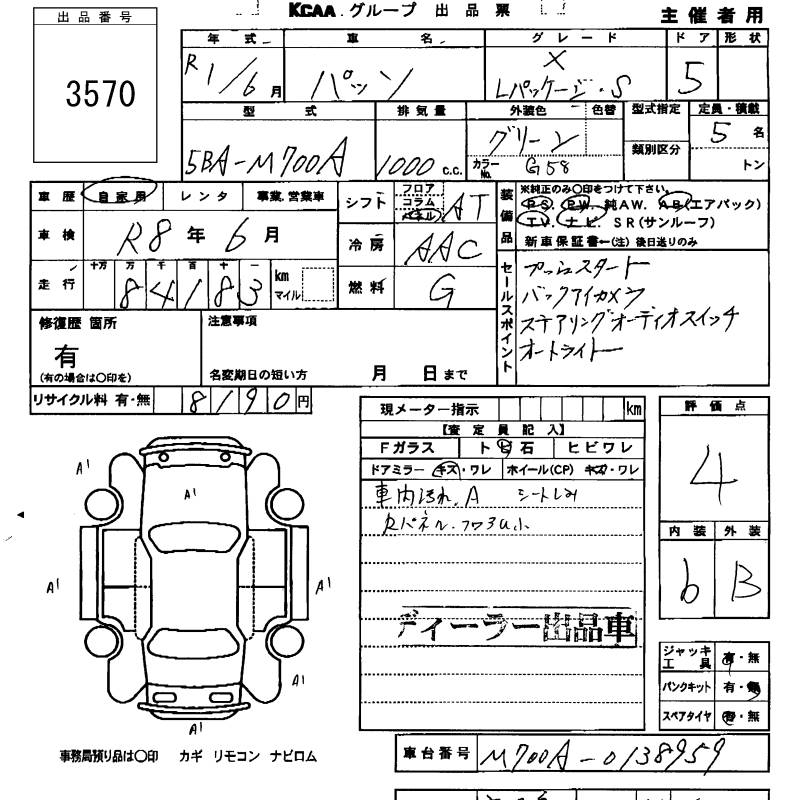 KCAA グループ 出品票
主催者用
出品番号
3570
年式 車名 グレード ドア 形状
R1/6月 パッソ X Lパッケージ・S 5
型式 排気量 外装色 色替 型式指定 定員・積載
5BA-M700A 1000 c.c. グリーン 類別区分 5名
カラーNo. G58 トン
車歴 自家用 レンタ 事業.営業車
シフト フロア コラム パネル AT
装備品 ※純正のみ○印をつけて下さい。
P.S. P.W. 純AW. AB(エアバック)
TV. ナビ. SR(サンルーフ)
新車保証書←(注)後日送りのみ
車検 R8年6月
冷房 AAC
走行 十万 万 千 百 十 一 km マイル
84183
燃料 G
セールスポイント
プッシュスタート
バックアイカメラ
ステアリングオーディオスイッチ
オートライト
修復歴 箇所 注意事項
有
(有の場合は○印を) 名変期日の短い方 月 日まで
リサイクル料 有・無 8190円
現メーター指示 km
【査定員記入】
Fガラス ト飛石 ヒビワレ
ドアミラー キズ・ワレ ホイール(CP) キズ・ワレ
車内汚れ.A シートしみ
ディーラー出品車
評価点
4
内装 外装
b B
ジャッキ工具 有・無
パンクキット 有・無
スペアタイヤ 有・無
A1
A1
A1
A1
A1
A1
事務局預り品は○印 カギ リモコン ナビロム
車台番号 M700A-0138959